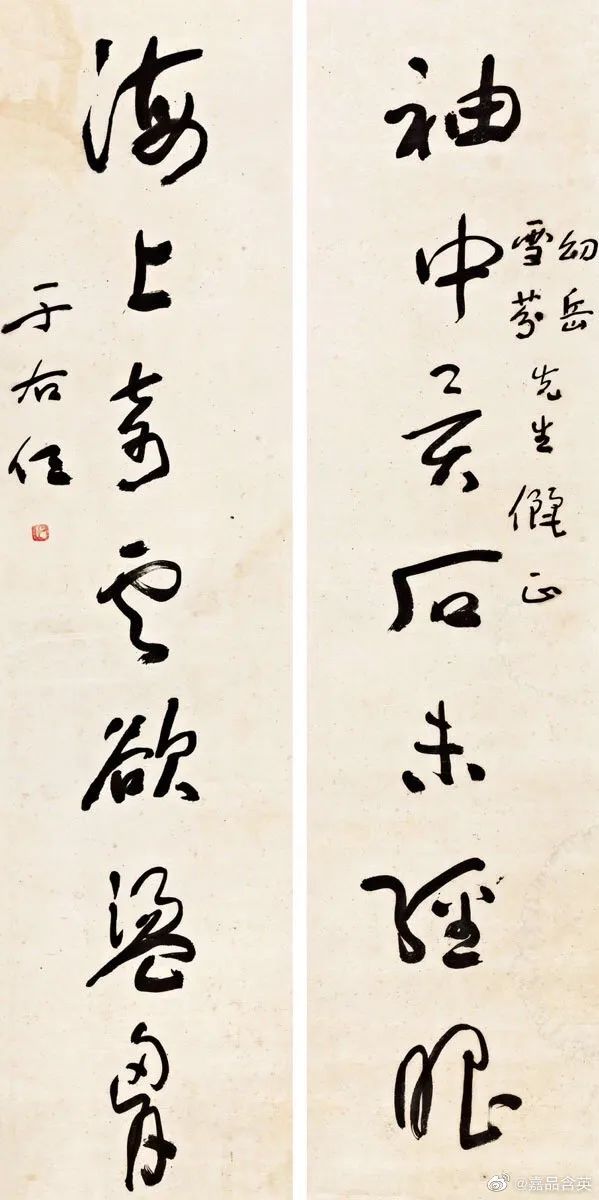 袖中异石未经眼
幼岳
雪芬先生儷正
海上奇云欲盪胸
于右任
@嘉品含英